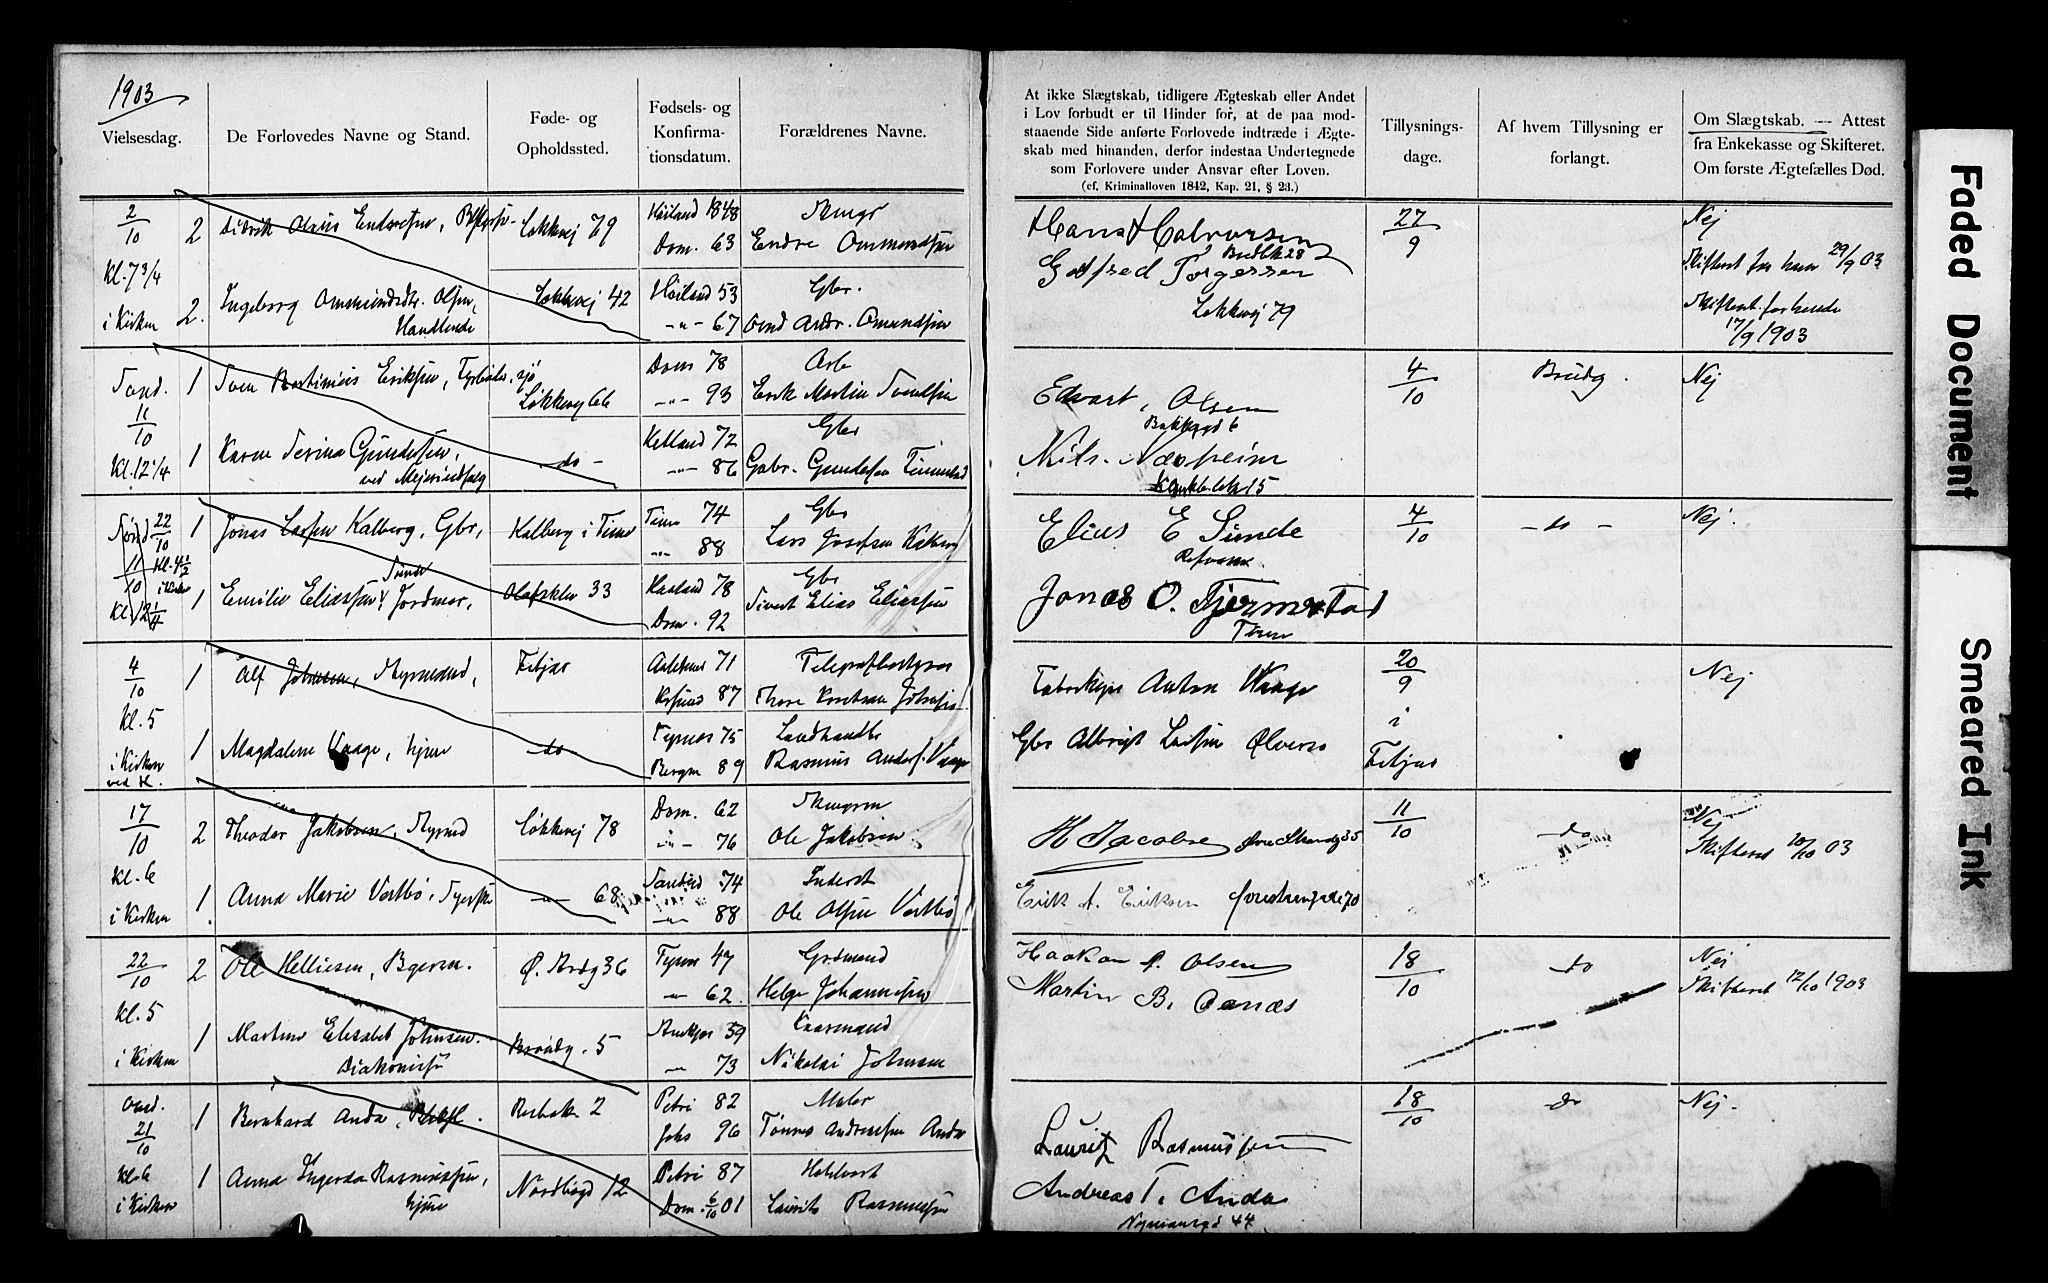 1903
Vielsesdag.
De Forlovedes Navne og Stand.
Føde- og
Opholdssted.
Fødsels- og
Konfirma-
tionsdatum.
Forældrenes Navne.
2/10
Kl. 7 3/4
i Kirken
2
Didrik Olaus Endresen,
Løkkevej 79
Høiland 1848
Dom. 63
Endre Ommundsen
2.
Ingeborg Ommundsdtr. Olsen,
Handlende
Løkkevej 42
Høiland 53
-"- 67
Gbr.
Omundsen
Sønd.
11/10
Kl. 12 1/4
1
Sven Bertinius Eriksen,
Løkkevej 66
Dom 78
-"- 93
Arb
Erik Martin Svendsen
1
Karen Serina Gundersen,
ved Mejeriudsalg
- do -
Hetland 72
-"- 86
Gbr
Gabr. Gundersen
22/10
Kl. 4 1/2
i Kirken
11/10
Kl. 12 1/4
1
Jonas Larsen Kalberg, Gbr,
Kalberg i Time
Time 74
-"- 88
Gbr
Lars Josefsen Kalberg
1
Emilie Eliassen Sunde, Jordmor,
Olafsklev 33
Haaland 78
Dom. 92
Gbr
Sivert Elias Eliassen
4/10
Kl. 5
i Kirken
ved K.
1
Alf Johnsen, Styrmand,
Fitjar
71
87
Telegrafbestyrer
1
Magdalene Vaage, hjme
- do -
Tysnes 75
Bergen 89
Landhandler
Rasmus Anders. Vaage
17/10
Kl. 6
i Kirken
2
Theodor Jakobsen, Styrmd
Løkkevej 78
Dom. 62
-"- 76
Ole Jakobsen
1
Anna Marie Vestbø,
-"- 68
74
-"- 88
Inderst
Ole Olsen Vestbø
22/10
Kl. 5
i Kirken
2
Ole Helliesen,
Ø. Strdg 36
47
-"- 62
Grdmand
Helge Johannesen
1
Martine Elisabet Johnsen.
Diakonisse
Breidg. 5
59
-"- 73
Nikolai Johnsen
Onsd.
21/10
Kl. 6
i Kirken
1
Bernhard Anda,
2
Petri 82
Johs 96
Maler
Tønnes Andreassen Anda
1
Anna Ingerda Rasmussen,
hjme
Nordbøgd 12
Petri 87
Dom. 6/10 01
Laurits Rasmussen
At ikke Slægtskab, tidligere Ægteskab eller Andet
i Lov forbudt er til Hinder for, at de paa mod-
staaende Side anførte Forlovede indtræde i Ægte-
skab med hinanden, derfor indestaa Undertegnede
som Forlovere under Ansvar efter Loven.
(cf. Kriminalloven 1842, Kap. 21, § 23.)
Tillysnings-
dage.
Af hvem Tillysning er
forlangt.
Om Slægtskab. — Attest
fra Enkekasse og Skifteret.
Om første Ægtefælles Død.
Hans Halvorsen
Godfred Torgersen
Løkkevej 79
27/9
Nej
Skifteret for ham 29/9 03
Skifteret for hende
17/9 1903
Edvart Olsen
Bakkegd 6
Nils Næsheim
15
4/10
Brudg.
Nej
Elias E Sunde
Jonas O. Tjermestad
Time
4/10
- do -
Nej.
Anton Waage
Gbr Albrigt Larsen Ølveres
20/9
i
Fitjar
Nej
H Jacobsen Øvre Strandg 35
Erik A. Eriksen Øvrestrandgade 70
11/10
do
Nej
Skifteret 10/10 03
Haakon A. Olsen
Martin B. Aanæs
18/10
do
Nej
Skifteret 12/10 1903
Lauritz Rasmussen
Andreas T. Anda
Nymansgd 44
18/10
do
Nej.
Faded Document
Smeared Ink